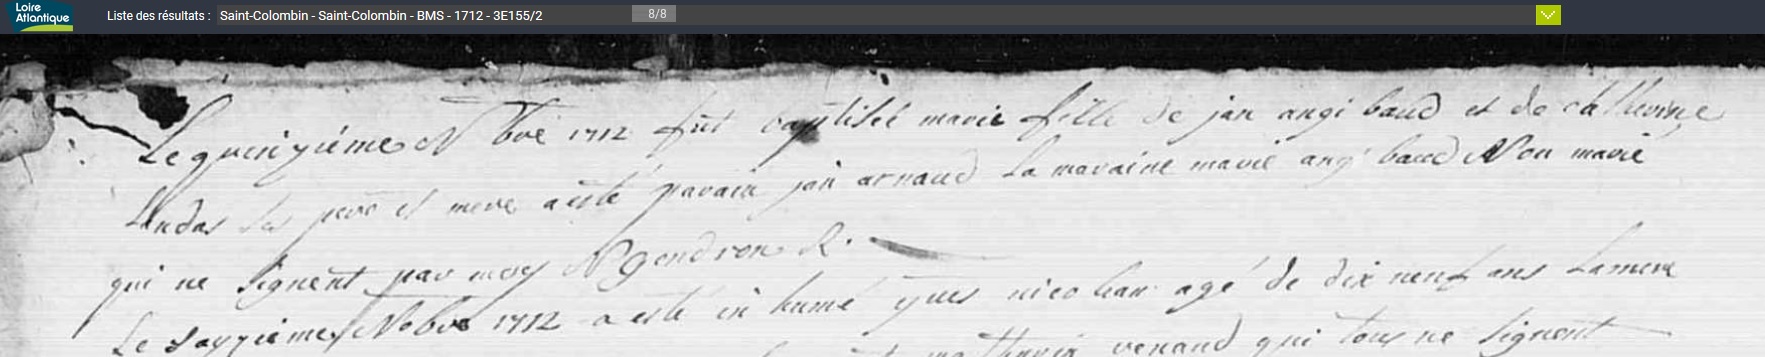 Loire
Atlantique
Liste des résultats : Saint-Colombin - Saint-Colombin - BMS - 1712 - 3E155/2
8/8
Le quinziéme N bre 1712 fut baptisée marie fille de jan angibaud et de catherine
ses pere et mere a esté parain jan arnaud la maraine marie angibaud Non marié
qui ne signent par moy Ngendron R.
Le sayziéme Nobre 1712 a esté in humé yves nicollau agé de dix neuf ans
venaud qui tous ne signent